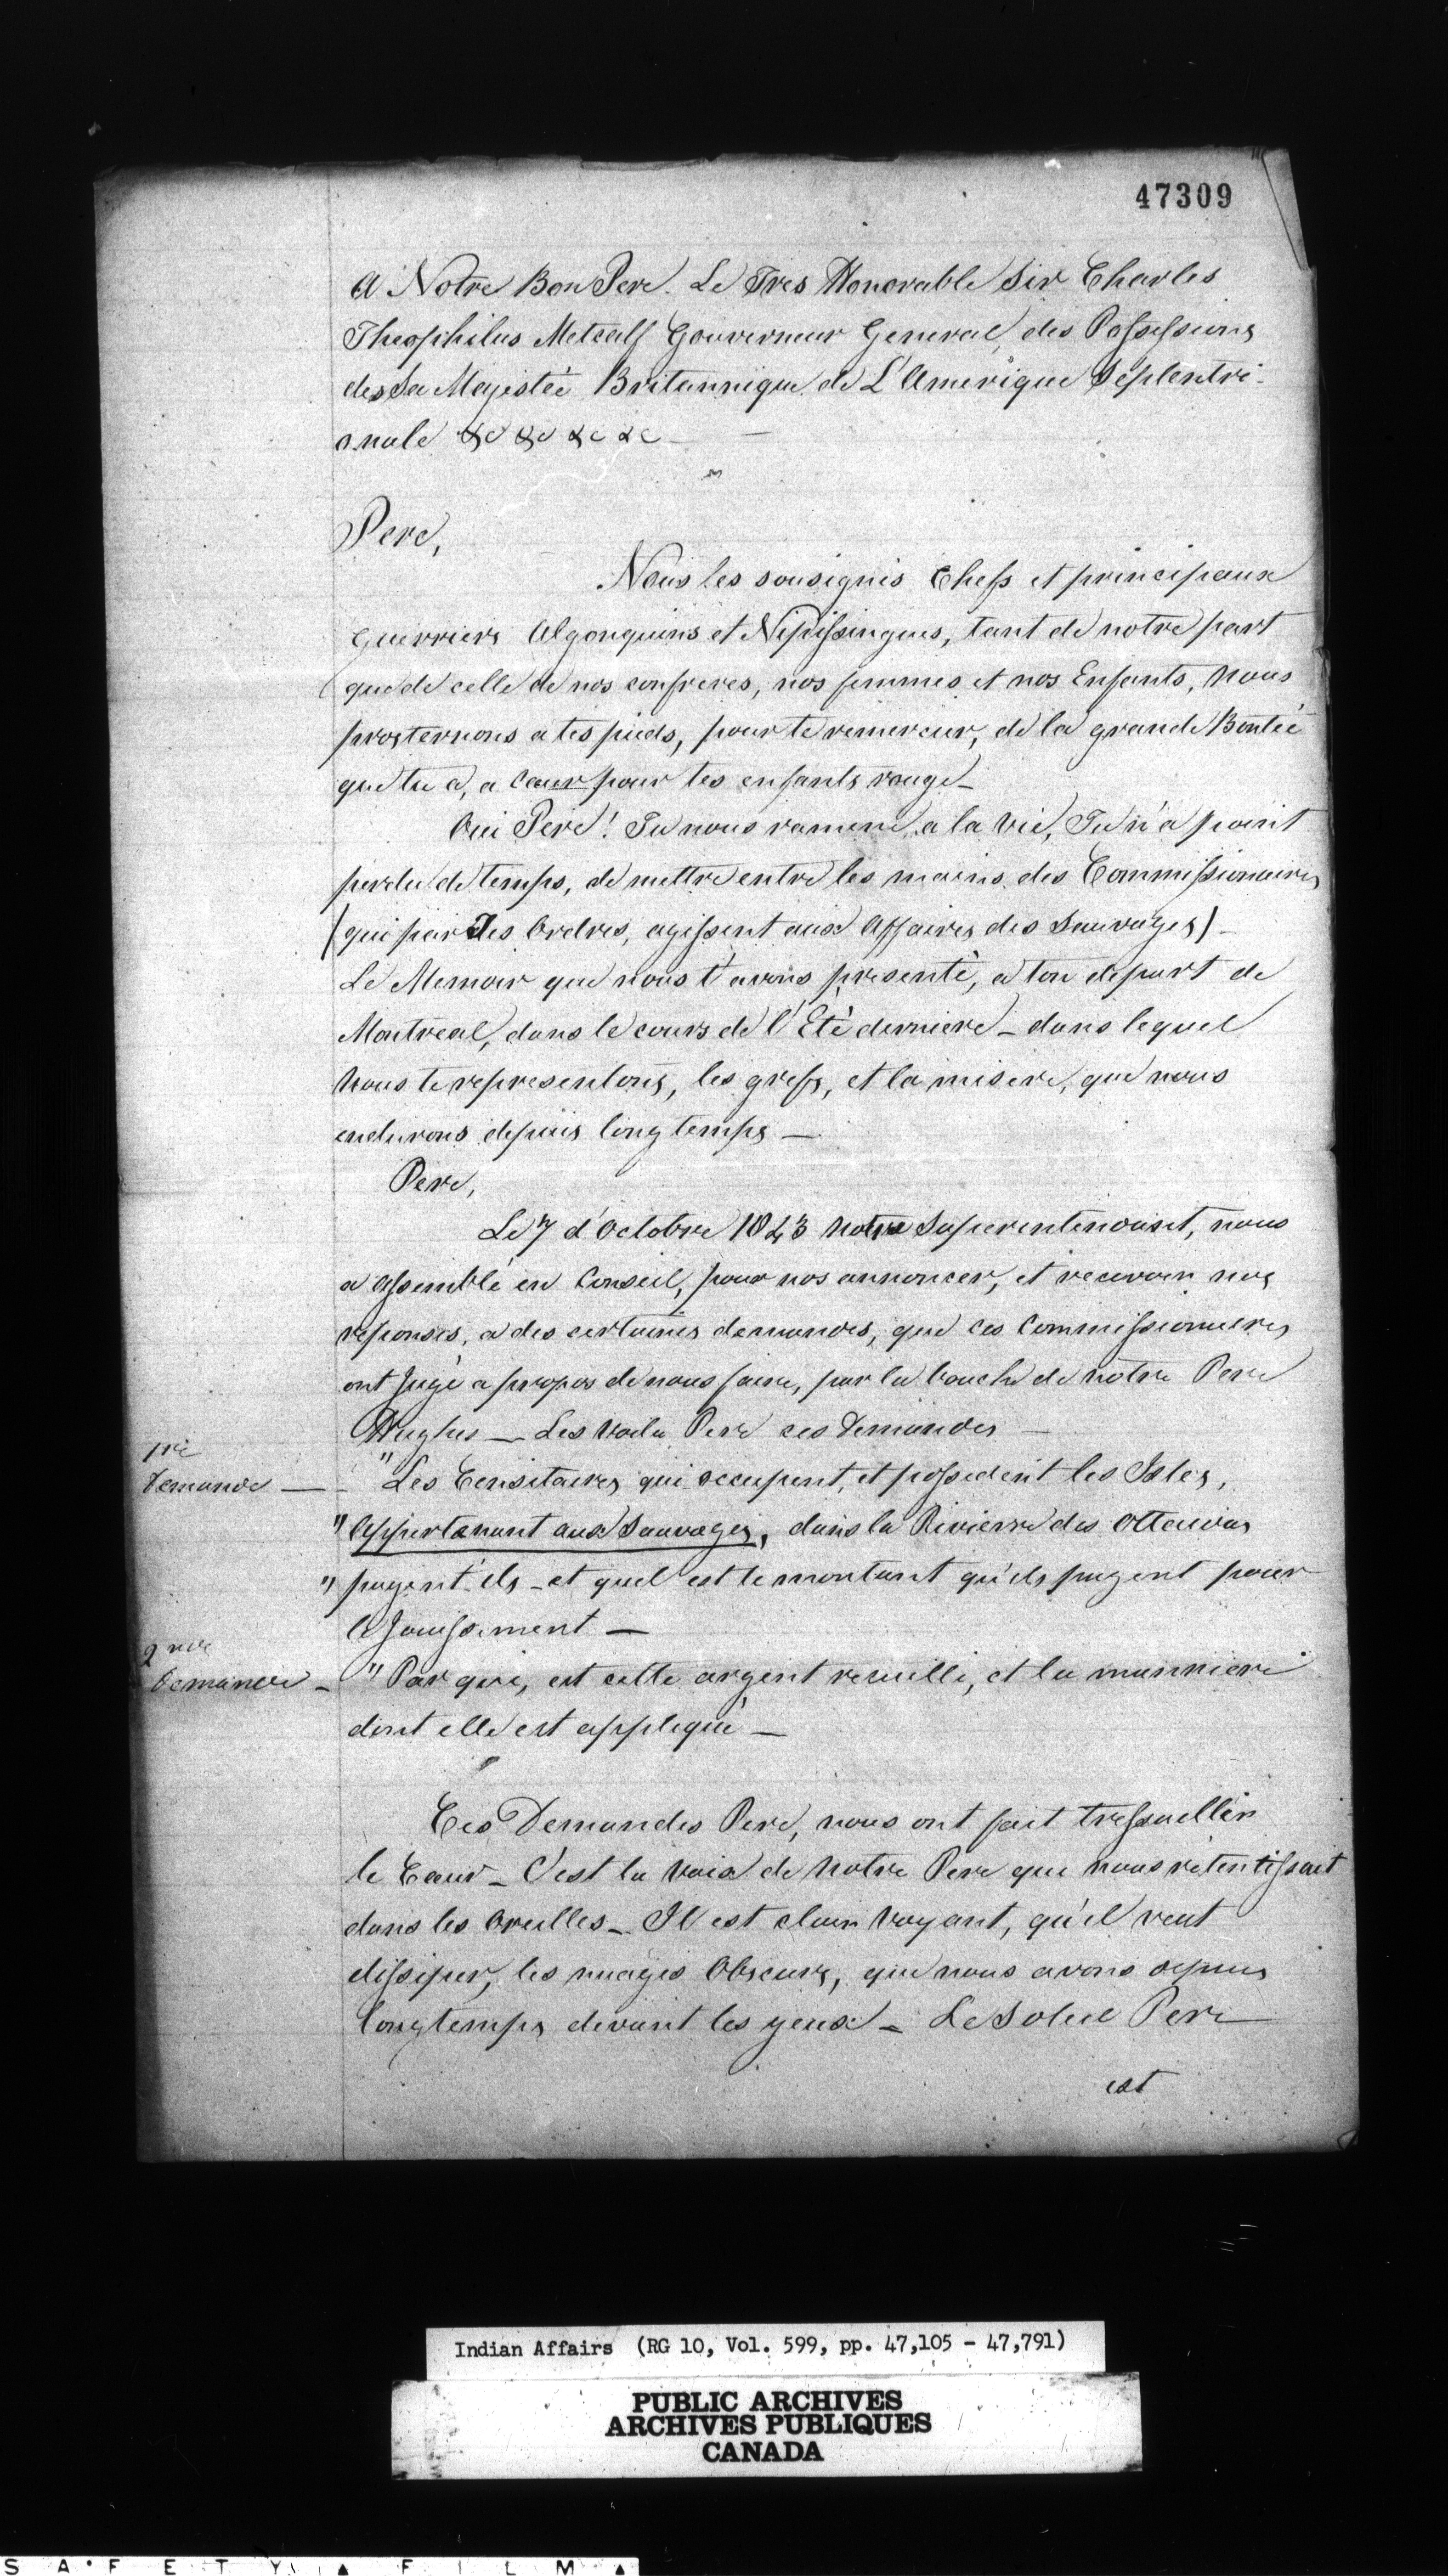 47309
A Notre Bon Pere. Le Tres Honorable Sir Charles
Theophilus Metcalf Gouverneur General, des Possessions
des Sa Majestée Britannique de L'Amerique Septentri-
onale &c &c &c &c —
Pere,
Nous les sousignés Chefs et principaux
guerriers Algonquins et Nipissingues, tant de notre part
que de celle de nos confreres, nos femmes et nos Enfants, nous
prosternons a tes pieds, pour te remercier, de la grande Bontée
que tu a, a Cœur pour tes enfants rouge —
Oui Pere! Tu nous ramene a la vie, Tu n'a point
perdu de temps, de mettre entre les mains des Commissionaires
(qui par Tes Ordres, agissent aux Affaires des Sauvages) —
Le Memoir que nous t'avons presenté, a ton depart de
Montreal, dans le cours de l'Eté derniere — dans lequel
nous te representons, les grefs, et la misere, que nous
endurons depuis long temps —
Pere,
Le 7 d'Octobre 1843 notre Superentendant, nous
a assemblé en Conseil, pour nos annoncer, et recevoir nos
reponses, a des certaines demandes, que ces Commissionaires
ont Jugé a propos de nous faire, par la bouche de notre Pere
Hughes — Les voila Pere ces Demandes —
1re
Demande — "Les Censitaires qui occupent, et possedent les Isles,
"Appartenant aux Sauvages, dans la Rivierre des Ottawas
" payent-ils — et quel est le montant qu'ils payent pour
le Jouissement —
2me
Demande — "Par qui, est cette argent recuilli, et la manniere
dont elle est appliqué —
Ces Demandes Pere, nous ont fait tressaillir
le Cœur — C'est la voix de notre Pere que nous retentissait
dans les Oreilles — Il est clair voyant, qu'il veut
dissiper, les nuages Obscurs, que nous avons depuis
longtemps devant les yeux — Le Soleil Pere
est
Indian Affairs (RG 10, Vol. 599, pp. 47,105 - 47,791)
PUBLIC ARCHIVES
ARCHIVES PUBLIQUES
CANADA
SAFETY FILM